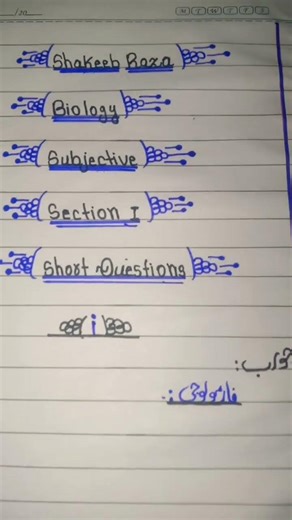 Shakeeb Raza
Biology
Subjective
Section I
Short Questions
i
جواب:
فزیالوجی: